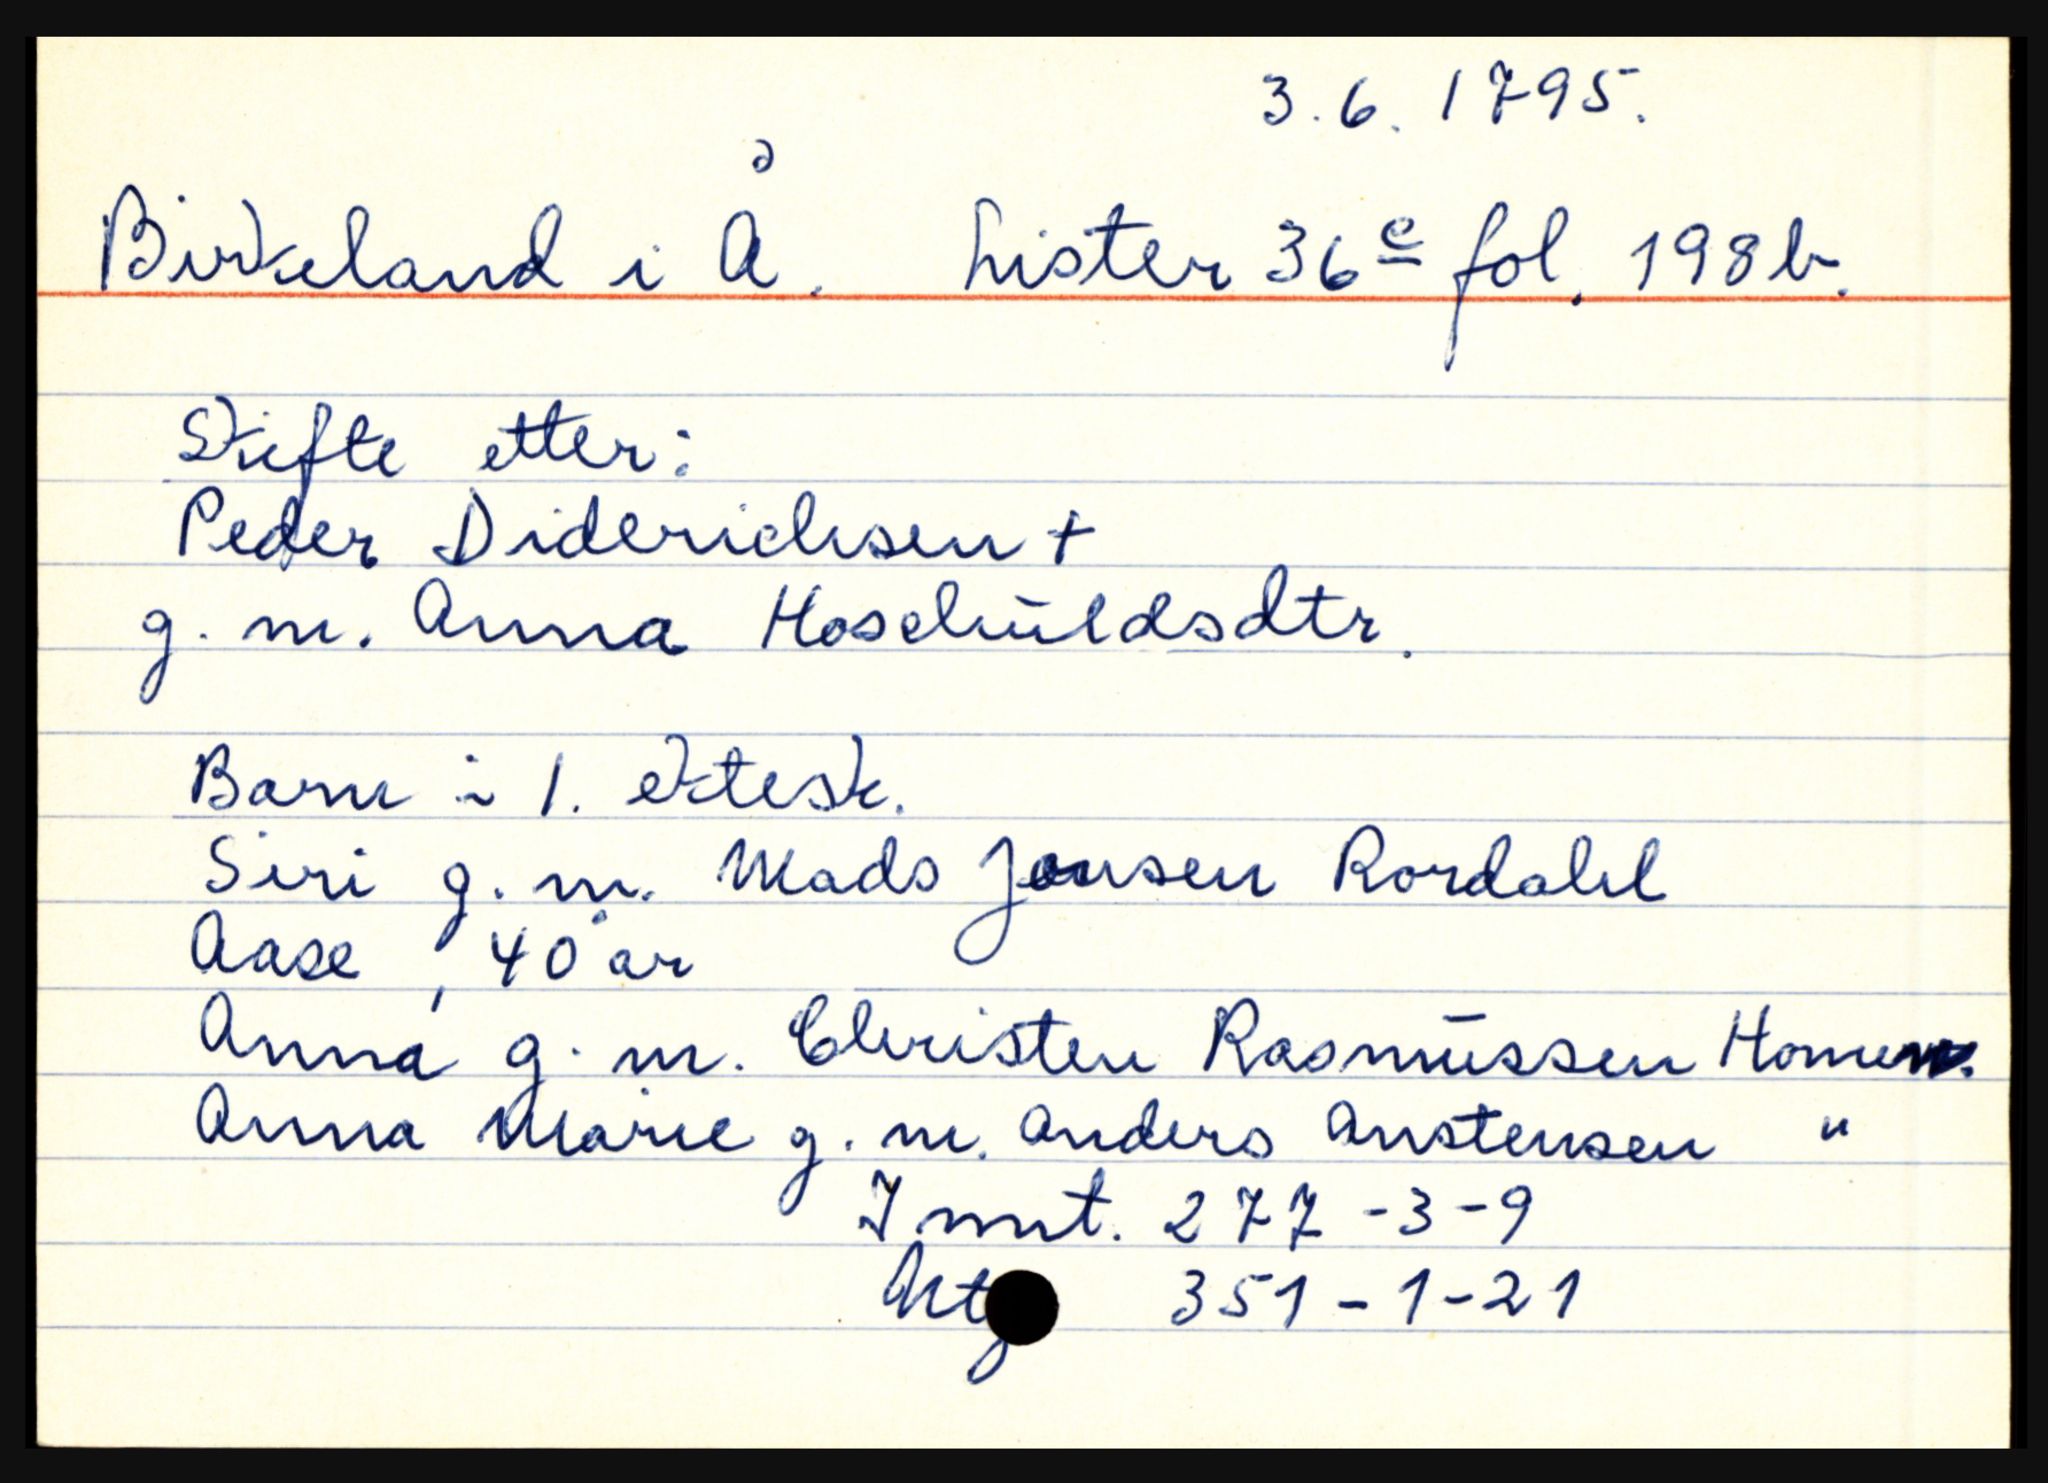 3.6.1795.
Birkeland i Å. Lister 36 c fol. 198 b.
Skifte etter:
Peder Diderichsen +
g. m. Anna Hoschuldsdtr.
Barn i 1. ektesk.
Siri g. m. Mads Jensen Rordahl
Aase, 40 år
Anna g. m. Christen Rasmussen Homme.
Anna Marie g. m. Anders Anstensen "
I mnt. 277-3-9
351-1-21